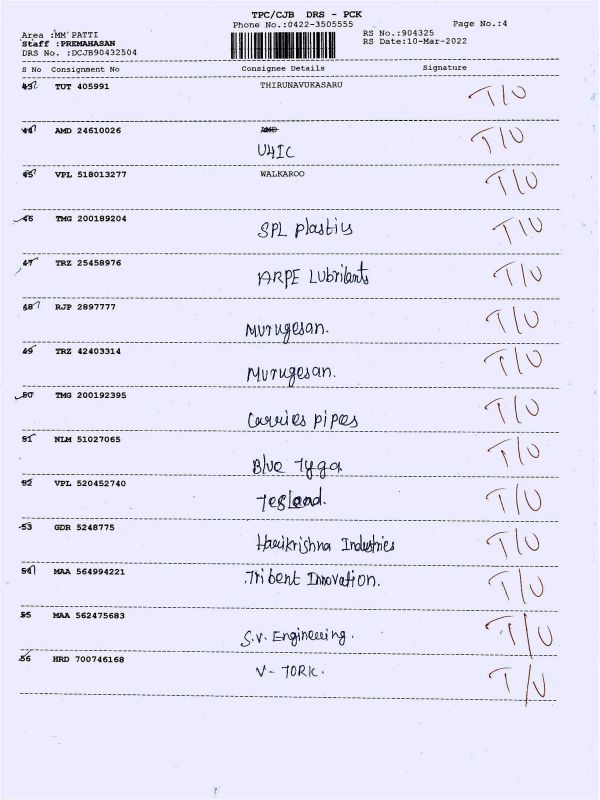 TPC/CJB DRS - PCK
Phone No.:0422-3505555 Page No.:4
Area :MM'PATTI RS No.:904325
Staff :PREMAHASAN RS Date:10-Mar-2022
DRS No. :DCJB90432504
S No Consignment No Consignee Details Signature
43 TUT 405991 THIRUNAVUKASARU T/U
44 AMD 24610026 AMD T/U
U4IC
45 VPL 518013277 WALKAROO T/U
46 TMG 200189204 SPL plastics T/U
47 TRZ 25458976 ARPE Lubrilants T/U
48 RJP 2897777 Murugesan. T/U
49 TRZ 42403314 Murugesan. T/U
50 TMG 200192395 Carries pipes T/U
51 NLM 51027065 Blue Tyga T/U
52 VPL 520452740 T/U
53 GDR 5248775 Harikrishna Industries T/U
54 MAA 564994221 Tribent Innovation. T/U
55 MAA 562475683 S.V. Engineering. T/U
56 HRD 700746168 V-TORK. T/U